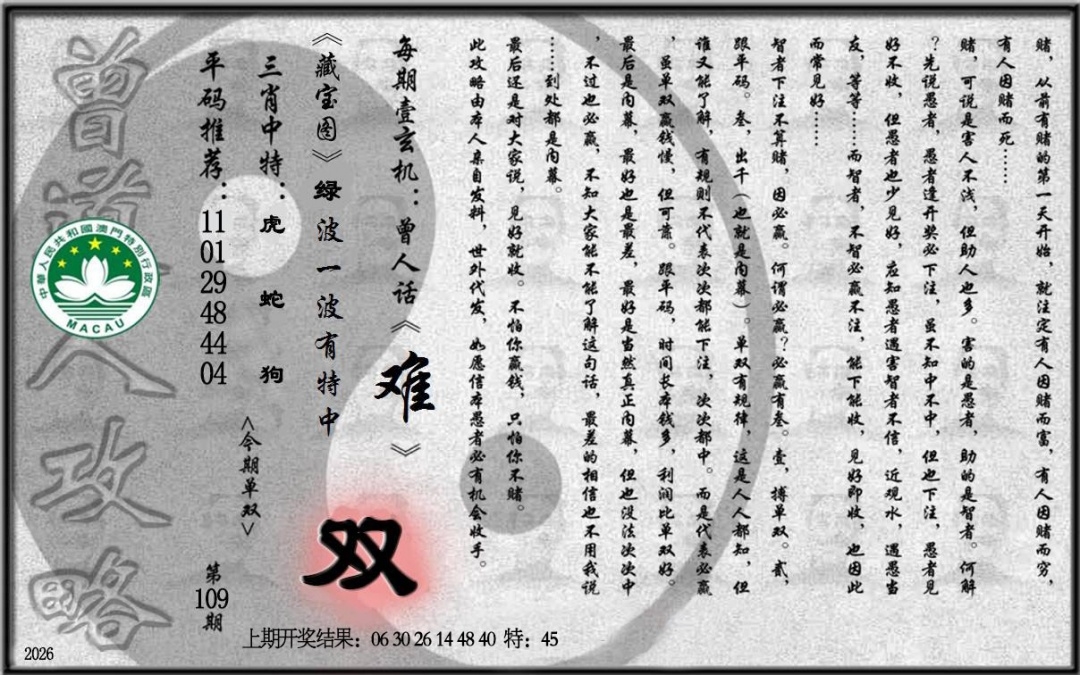 赌，从前有赌的第一天开始，就注定有人因赌而富，有人因赌而穷，
有人因赌而死……
赌，可说是害人不浅，但助人也多。害的是愚者，助的是智者。何解
？先说愚者，愚者逢开奖必下注，虽不知中不中，但也下注，愚者见
好不收，但愚者也少见好，应知愚者遇害智者不信，近观水，遇愚当
友，等等……而智者，不智必赢不注，能下能收，见好即收，也因此
而常见好……
智者下注不算赌，因必赢。何谓必赢？必赢有叁。壹，搏单双。贰，
跟平码。叁，出千（也就是内幕）。单双有规律，这是人人都知，但
谁又能了解，有规则不代表次次都能下注，次次都中。而是代表必赢
，虽单双赢钱慢，但可靠。跟平码，时间长本钱多，利润比单双好。
最后是内幕，最好也是最差，最好是当然真正内幕，但也没法次次中
，不过也必赢，不知大家能不能了解这句话，最差的相信也不用我说
……到处都是内幕。
最后还是对大家说，见好就收。不怕你赢钱，只怕你不赌。
此攻略由本人亲自发料，世外代发，如愿信本愚者必有机会收手。
每期壹玄机：曾人话《难》
《藏宝图》绿波一波有特中
双
三肖中特：虎 蛇 狗
<今期单双>
平码推荐：11 01 29 48 44 04
第109期
曾道人攻略
中華人民共和國澳門特別行政區
MACAU
上期开奖结果：06 30 26 14 48 40 特：45
2026